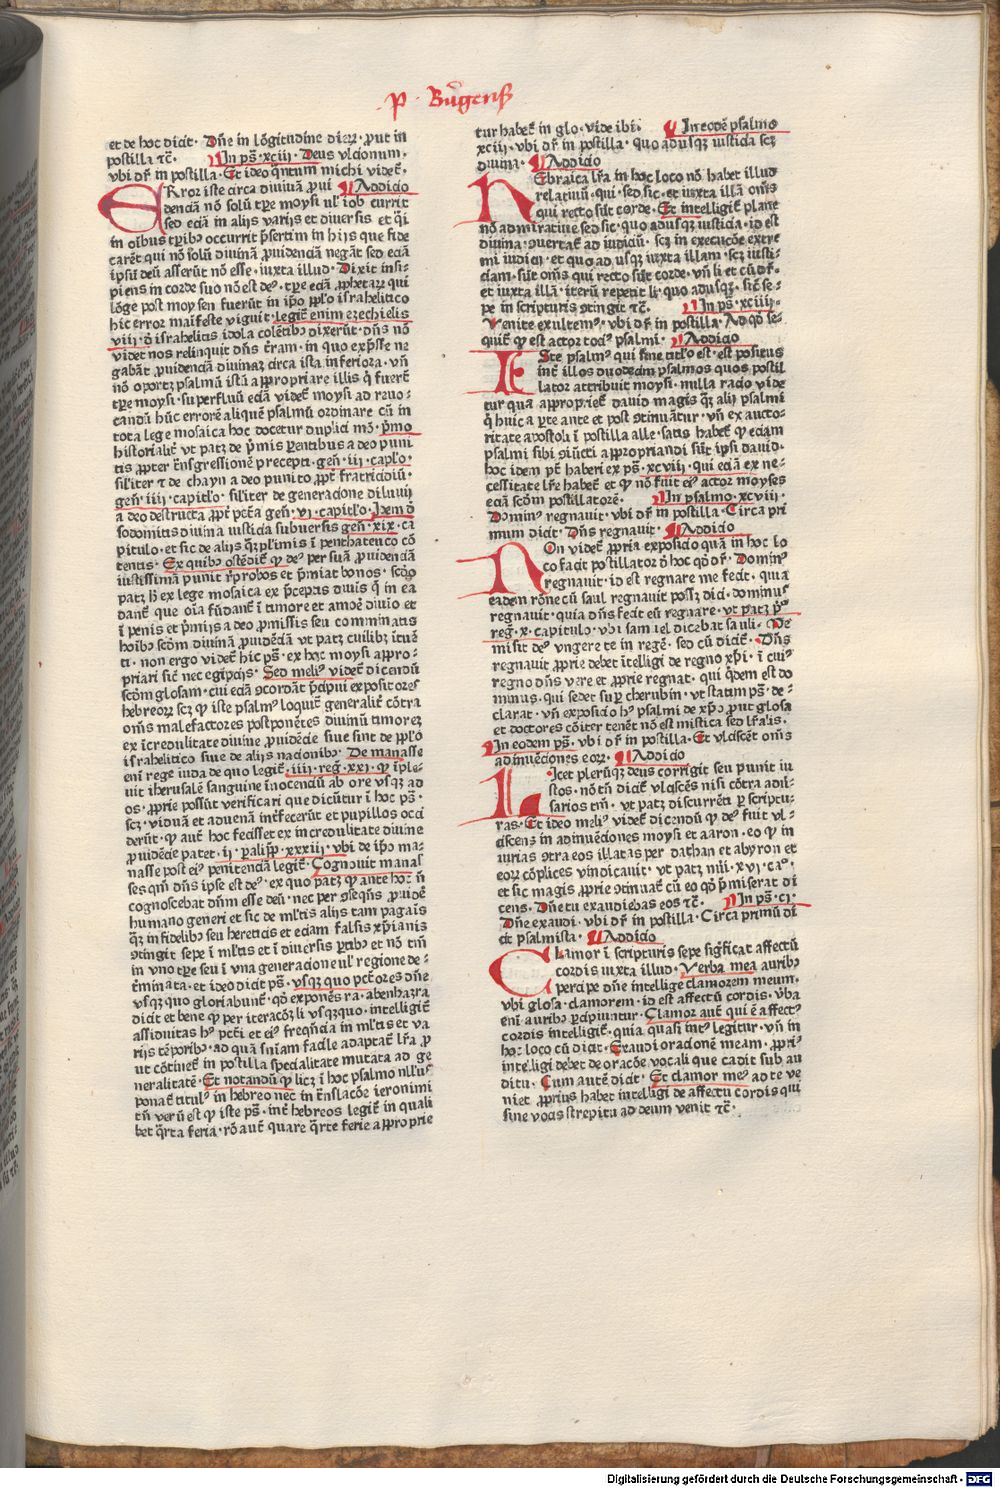 P. Burgenſ
et de hoc dicit. Dñe in lõgitudine dieꝝ. ꝓut in
poſtilla ꝛc̃. In pſ̃. xciii. Deus vlcionum.
vbi dr̃ in poſtilla. Et ideo q̃ntum michi videt̃.
ERror iſte circa diuinã ꝓui Addicio
denciã nõ ſolũ tp̃e moyſi ul' iob currit
ſed eciã in alijs varijs et diuerſis et q̃ſi
in oĩbus tp̃ribꝰ occurrit p̃ſertim in hijs que fide
carẽt qui nõ ſolũ diuinã ꝓuidenciã negãt ſed eciã
ip̃ſũ deũ aſſerũt nõ eſſe. iuxta illud. Dixit inſi-
piens in corde ſuo nõ eſt deꝰ. tp̃e eciã ꝓphetaꝝ qui
lõge poſt moyſen fuerũt in ip̃o pp̃lo iſrahelitico
hic error maĩfeſte viguit. legit̃ enim ezechielis
viii. ꝙ iſrahelitis idola colẽtibꝰ dixerũt. dñs nõ
videt nos relinquit dñs t̃ram. in quo exp̃ſſe ne
gabãt ꝓuidenciã diuinaꝫ circa iſta inferiora. vñ
nõ oportꝫ pſalmũ iſtã appropriare illis q̃ fuerũt
tp̃e moyſi. ſuperfluũ eciã videt̃ moyſi ad reuo-
candũ hũc errorẽ aliquẽ pſalmũ ordinare cũ in
tota lege moſaica hoc docetur duplici mõ. p̃mo
hiſtorialit̃ vt patꝫ de p̃mis parentibus a deo puni
tis ꝓpter t̃nſgreſſionẽ precepti. geñ. iii. cap̃l'o.
ſil'iter ⁊ de chayn a deo punito ꝓpt̃ fratricidiũ.
geñ. iiii. capitl'o. ſil'iter de generacione diluuij
a deo deſtructa ꝓpt̃ pctã geñ. vi. capitl'o. Item ꝙ
ſodomitis diuina iuſticia ſubuerſis geñ. xix. ca
pitulo. et ſic de alijs q̃ꝫ pl'imis ĩ penthateuco cõ
tentis. Ex quibꝰ oſtẽdit̃ ꝙ deꝰ per ſuã ꝓuidenciã
iuſtiſſimã punit rep̃robos et p̃miat bonos. ſcd̃o
patꝫ hͦ ex lege moſaica ex p̃ceptis diuĩs q̃ in ea
dant̃ que oĩa fũdant̃ ĩ timore et amor̃ diuĩo et
ĩ penis et p̃mijs a deo ꝓmiſſis ſeu comminatis
hoĩbꝰ ſcd̃m diuinã ꝓuidẽciã vt patꝫ cuilibꝫ ĩtuẽ
ti. non ergo videt̃ hic pſ̃. ex hoc moyſi appro-
priari ſic̃ nec egĩpcijs. Sed meliꝰ videt̃ dicendũ
ſcd̃m gloſam. cui eciã ꝯcordãt p̃cipui expoſitores
hebreoꝝ ſcꝫ ꝙ iſte pſalmꝰ loquit̃ generalit̃ cõtra
om̃s malefactores poſtponẽtes diuinũ timorẽ
ex ĩcredulitate diuine ꝓuidẽcie ſiue ſint de pp̃l'o
iſrahelitico ſiue de alijs nacionibꝰ. De manaſſe
enĩ rege iuda de quo legit̃. iiii. reg̃. xxi. ꝙ ĩple-
uit iheruſalẽ ſanguine ĩnocenciũ ab ore vſqꝫ ad
os. ꝓprie poſſũt verificari que dicũtur ĩ hoc pſ̃.
ſcꝫ. viduã et aduenã int̃fecerũt et pupillos occi
derũt. ꝙ aut̃ hoc feciſſet ex incredulitate diuine
ꝓuidẽcie patet. ii. paliꝑp̃. xxxiii. vbi de ip̃o ma-
naſſe poſt eiꝰ penitenciã legit̃. Cognouit manaſ
ſes qm̃ dñs ipſe eſt deꝰ. ex quo patꝫ ꝙ ante hoc ñ
cognoſcebat dñm eſſe deũ. nec per ꝯſequẽs ꝓuidẽ
humano generi et ſic de ml'tis alijs tam pagaĩs
q̃ꝫ infidelibꝰ ſeu hereticis et eciam falſis xp̃ianis
ꝯtingit ſepe ĩ ml'tis et ĩ diuerſis ptibꝰ et nõ tm̃
in vno tp̃e ſeu ĩ vna generacione ul' regione de-
t̃minata. et ideo dicit pſ̃. vſqꝫ quo pctõres dñe
vſqꝫ quo gloriabunt̃. qd̃ exponẽs ra. abenhazra
dicit et bene ꝙ per iteracõꝫ li vſqꝫquo. intelligit̃
aſſiduitas hꝰ pcti et eiꝰ freqñcia in ml'tis et va
rijs tẽporibꝰ. ad quã ſniam facile adaptat̃ lr̃a ꝓ
ut cõtinet̃ in poſtilla ſpecialitate mutata ad ge
neralitatẽ. Et notandũ ꝙ licꝫ ĩ hoc pſalmo nll'ꝰ
ponat̃ titulꝰ in hebreo nec in t̃nſlacõe ieronimi
tñ verũ eſt ꝙ iſte pſ̃. int̃ hebreos legit̃ in quali
bet q̃rta feria. rõ aut̃ quare q̃rte ferie approprie
tur habet̃ in glo. vide ibi. In eodẽ pſalmo
xciii. vbi dr̃ in poſtilla. quo aduſqꝫ iuſticia ſcꝫ
diuina. Addicio
HEbraica lr̃a in hoc loco nõ habet illud
relatiuũ. qui. ſed ſic. et iuxta illã om̃s
qui recto ſũt corde. Et intelligit̃ plane
nõ admiratiue ſed ſic. quo aduſqꝫ iuſticia. id eſt
diuina. ꝯuertat̃ ad iudiciũ. ſcꝫ in execucõe extre
mi iudicij. et quo ad vſqꝫ iuxta illam. ſcꝫ iuſti-
ciam. ſũt om̃s qui recto ſũt corde. vñ li et cũ dr̃.
et iuxta illã. iterũ repetit li. quo aduſqꝫ. ſic̃ ſe-
pe in ſcripturis ꝯtingit ꝛc̃. In pſ̃. xciiii.
Venite exultemꝰ. vbi dr̃ in poſtilla. Ad qd̃ ſe-
quit̃ ꝙ eſt actor tociꝰ pſalmi. Addicio
ISte pſalmꝰ qui ſine titl'o eſt. eſt poſitus
int̃ illos duodecim pſalmos quos poſtil
lator attribuit moyſi. nulla racio vide
tur qua appropriet̃ dauid magis q̃ꝫ alij pſalmi
q̃ huic a pte ante et poſt ꝯtinuãtur. vñ ex aucto-
ritate apoſtoli ĩ poſtilla alle. ſatis habet̃ ꝙ eciam
pſalmi ſibi ꝯiũcti appropriandi ſũt ipſi dauid.
hoc idem pt̃ haberi ex pſ̃. xcviij. qui eciã ex ne-
ceſſitate lr̃e habet̃ et ꝙ nõ fuit eiꝰ actor moyſes
eciã ſcd̃m poſtillatorẽ. In pſalmo. xcviii.
Dominꝰ regnauit. vbi dr̃ in poſtilla. Circa pri
mum dicit. Dñs regnauit. Addicio
NOn videt̃ ꝓpria expoſicio quã in hoc lo
co facit poſtillator ꝙ hoc qd̃ dr̃. Dominꝰ
regnauit. id eſt regnare me fecit. quia
eadem rõne cũ ſaul regnauit poſſꝫ dici. dominus
regnauit. quia dñs fecit eũ regnare. vt patꝫ p̃ͦ
reg̃. x. capitulo. vbi ſamuel dicebat ſauli. Me
miſit deꝰ vngere te in regẽ. ſed cũ dicit̃. Dñs
regnauit ꝓprie debet ĩtelligi de regno xp̃i. ĩ cuiꝰ
regno dñs vere et ꝓprie regnat. qui q̃dem eſt do
minus. qui ſedet ſuꝑ cherubin. vt ſtatim pſ̃. de-
clarat. vñ expoſicio hꝰ pſalmi de xp̃o ꝓut gloſa
et doctores cõiter tenẽt nõ eſt miſtica ſed lr̃alis.
In eodem pſ̃. vbi dr̃ in poſtilla. Et vlciſcẽs om̃s
adinuẽciones eoꝝ. Addicio
LIcet pleruqꝫ deus corrigit ſeu punit iu
ſtos. nõ tñ dicit̃ vlciſcẽs niſi cõtra adu-
ſarios tm̃. vt patꝫ diſcurrẽti ꝑ ſcriptu-
ras. Et ideo meliꝰ videt̃ dicendũ ꝙ deꝰ fuit vl-
ciſcens in adinuẽciones moyſi et aaron. eo ꝙ in
iurias ꝯtra eos illatas per dathan et abyron et
eoꝝ cõplices vindicauit. vt patꝫ nũi. xvi. caͦ.
et ſic magis ꝓprie ꝯtinuat̃ cũ eo qd̃ p̃miſerat di
cens. Dñe tu exaudiebas eos ꝛc̃. In pſ̃. ci.
Dñe exaudi. vbi dr̃ in poſtilla. Circa primũ di
cit pſalmiſta. Addicio
CLamor ĩ ſcripturis ſepe ſigñficat affectũ
cordis iuxta illud. Verba mea auribꝰ
percipe dñe intellige clamorem meum.
vbi gloſa. clamorem. id eſt affectũ cordis. v̓ba
enĩ auribꝰ ꝑcipiuntur. Clamor aut̃ qui ẽ affectꝰ
cordis intelligit̃. quia quaſi intꝰ legitur. vñ in
hoc loco cũ dicit. Exaudi oracionẽ meam. ꝓpriꝰ
intelligi debet de oracõe vocali que cadit ſub au
ditu. Cum autẽ dicit. Et clamor meꝰ ad te ve
niet ꝓprius habet intelligi de affectu cordis qui
ſine vocis ſtrepitu ad deum venit ꝛc̃.
Digitalisierung gefördert durch die Deutsche Forschungsgemeinschaft - DFG